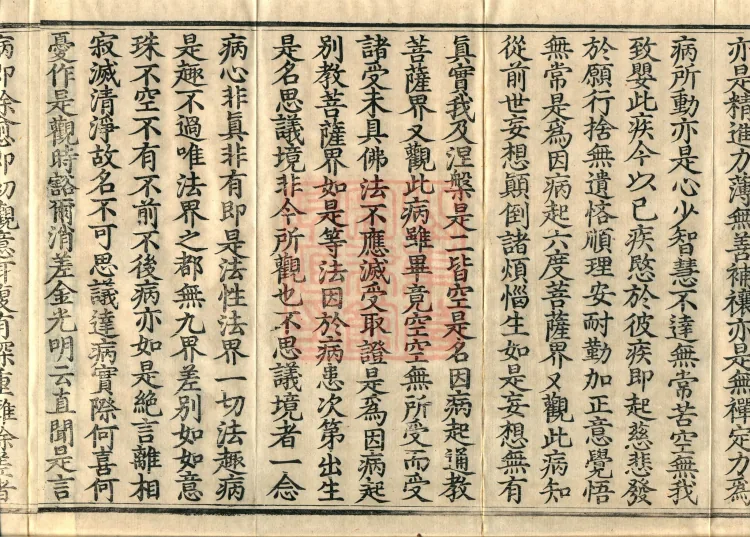 亦是精進力薄無善補禳亦是無禪定力爲
病所動亦是心少智慧不達無常苦空無我
致嬰此疾今以己疾愍於彼疾即起慈悲發
於願行捨無遺悋順理安耐勤加正意覺悟
無常是爲因病起六度菩薩界又觀此病知
從前世妄想顛倒諸煩惱生如是妄想無有
眞實我及涅槃是二皆空是名因病起通教
菩薩界又觀此病雖畢竟空空無所受而受
諸受未具佛法不應滅受取證是爲因病起
別教菩薩界如是等法因於病患次第出生
是名思議境非今所觀也不思議境者一念
病心非眞非有即是法性法界一切法趣病
是趣不過唯法界之都無九界差別如如意
珠不空不有不前不後病亦如是絶言離相
寂滅清淨故名不可思議達病實際何喜何
憂作是觀時豁爾消差金光明云直聞是言
病即除愈即初觀意耳復有深重難除差者